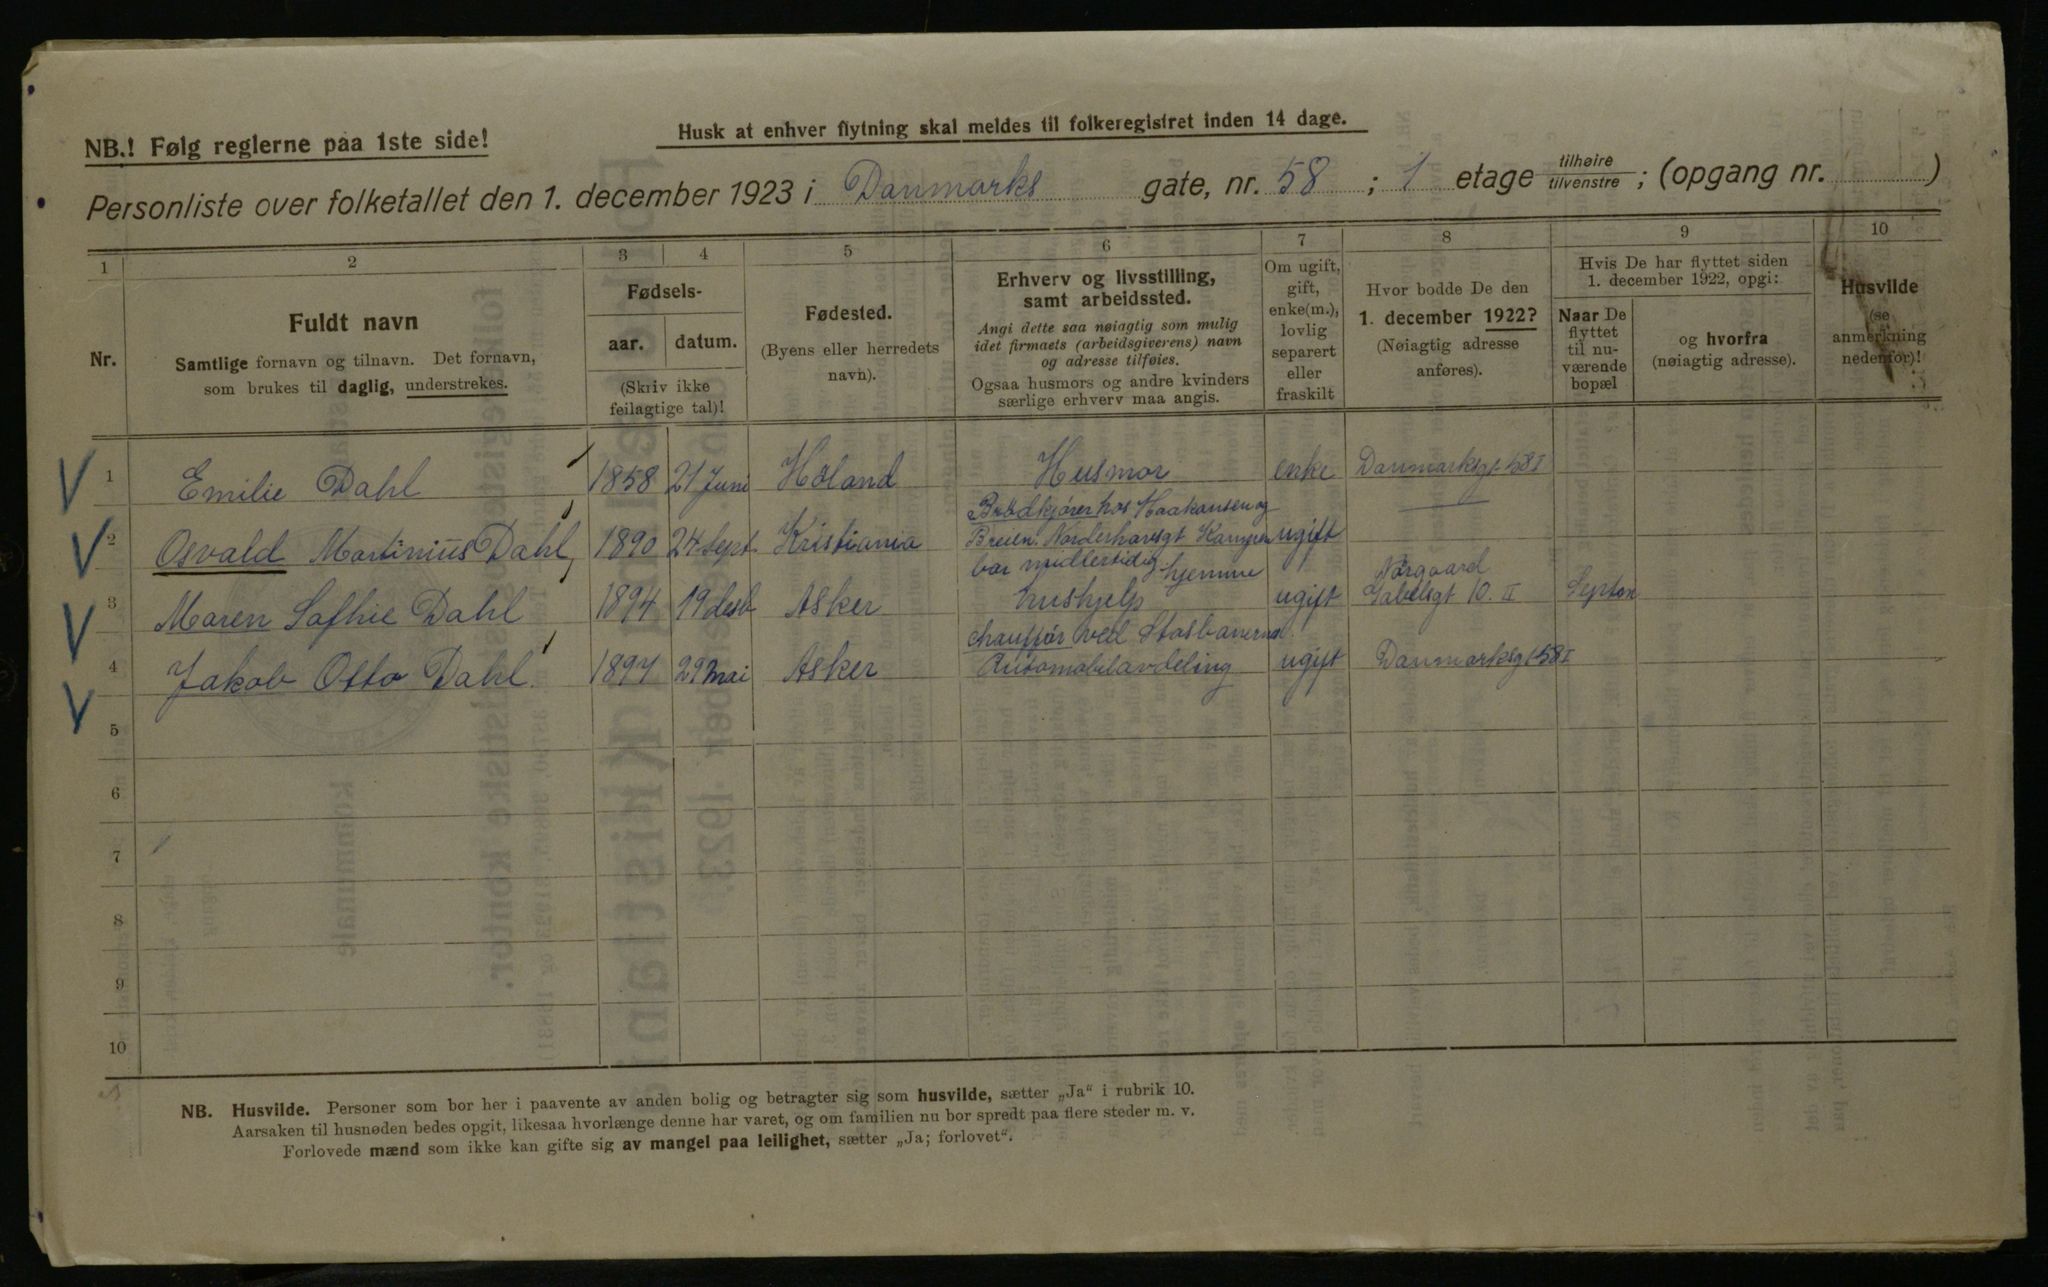 NB.! Følg reglerne paa 1ste side!
Husk at enhver flytning skal meldes til folkeregistret inden 14 dage.
Personliste over folketallet den 1. december 1923 i Danmarks gate, nr. 58 ; 1 etage tilhøire tilvenstre ; (opgang nr. )
1 2 3 4 5 6 7 8 9 10
Nr.
Fuldt navn
Samtlige fornavn og tilnavn. Det fornavn,
som brukes til daglig, understrekes.
Fødsels-
aar. datum.
(Skriv ikke
feilagtige tal)!
Fødested.
(Byens eller herredets
navn).
Erhverv og livsstilling,
samt arbeidssted.
Angi dette saa nøiagtig som mulig
idet firmaets (arbeidsgiverens) navn
og adresse tilføies.
Ogsaa husmors og andre kvinders
særlige erhverv maa angis.
Om ugift,
gift,
enke(m.),
lovlig
separert
eller
fraskilt
Hvor bodde De den
1. december 1922?
(Nøiagtig adresse
anføres).
Hvis De har flyttet siden
1. december 1922, opgi:
Naar De
flyttet
til nu-
værende
bopæl
og hvorfra
(nøiagtig adresse).
Husvilde
(se
anmerkning
nedenfor)!
1 Emilie Dahl 1858 21 Juni Høland Husmor enke Danmarksgt 58 I
Brødkjører hos Haakansen og
2 Osvald Martinius Dahl, 1890 24 Sept. Kristiania Breien. Norderhovsgt Kampen ugift
bor midlertidig hjemme
Norgaard
3 Maren Sofhie Dahl 1894 19 desb Asker hushjelp ugift Gabelsgt 10. II Septem
chauffør ved Stasbanerne.
4 Jakob Otto Dahl. 1897 29 mai Asker Automobilavdeling ugift Danmarksgt 58 I
5
6
7
8
9
10
NB. Husvilde. Personer som bor her i paavente av anden bolig og betragter sig som husvilde, sætter „Ja“ i rubrik 10.
Aarsaken til husnøden bedes opgit, likesaa hvorlænge denne har varet, og om familien nu bor spredt paa flere steder m. v.
Forlovede mænd som ikke kan gifte sig av mangel paa leilighet, sætter „Ja; forlovet“.